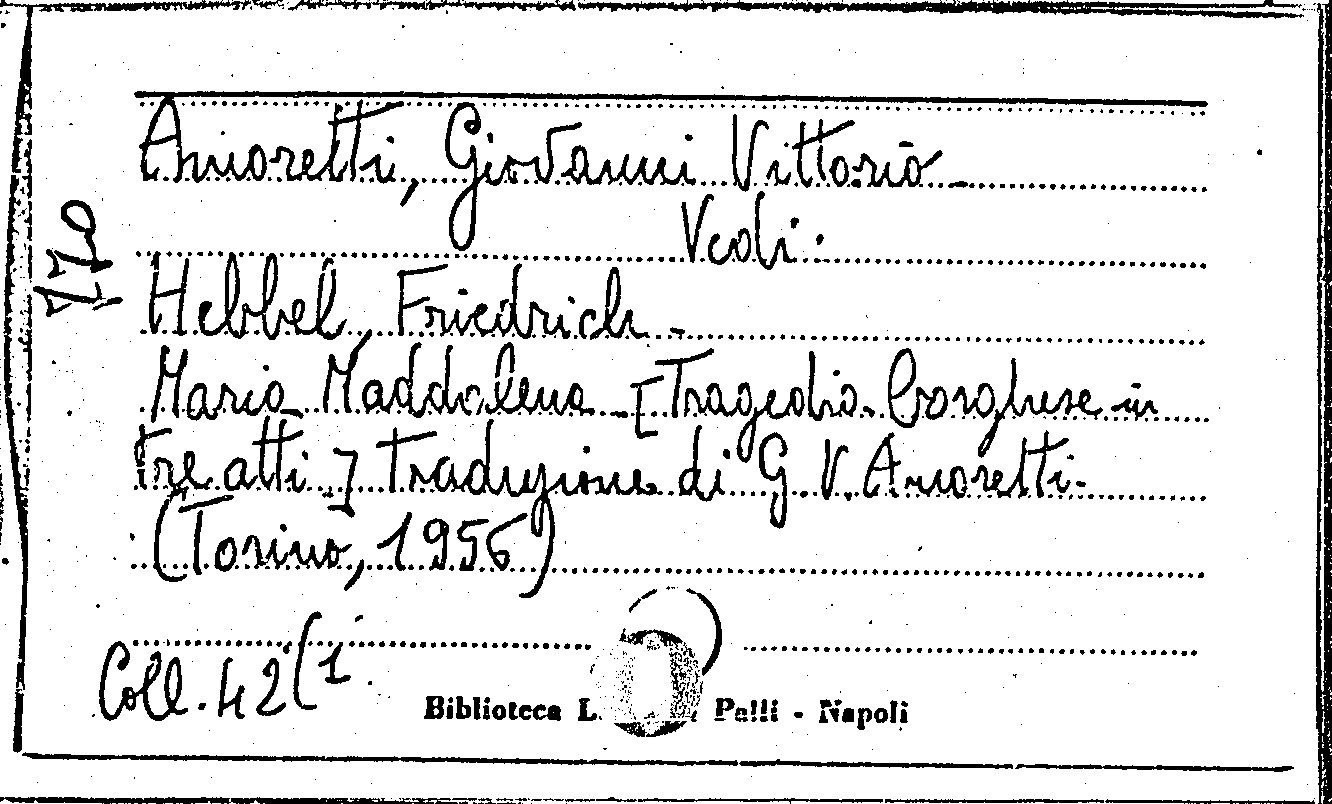 Amoretti, Giovanni Vittorio -
Vedi:
Hebbel, Friedrich -
Maria Maddalena - [Tragedia borghese in
tre atti.] traduzione di G. V. Amoretti.
(Torino, 1956)
Coll. 42 (1
Biblioteca L. Palli - Napoli